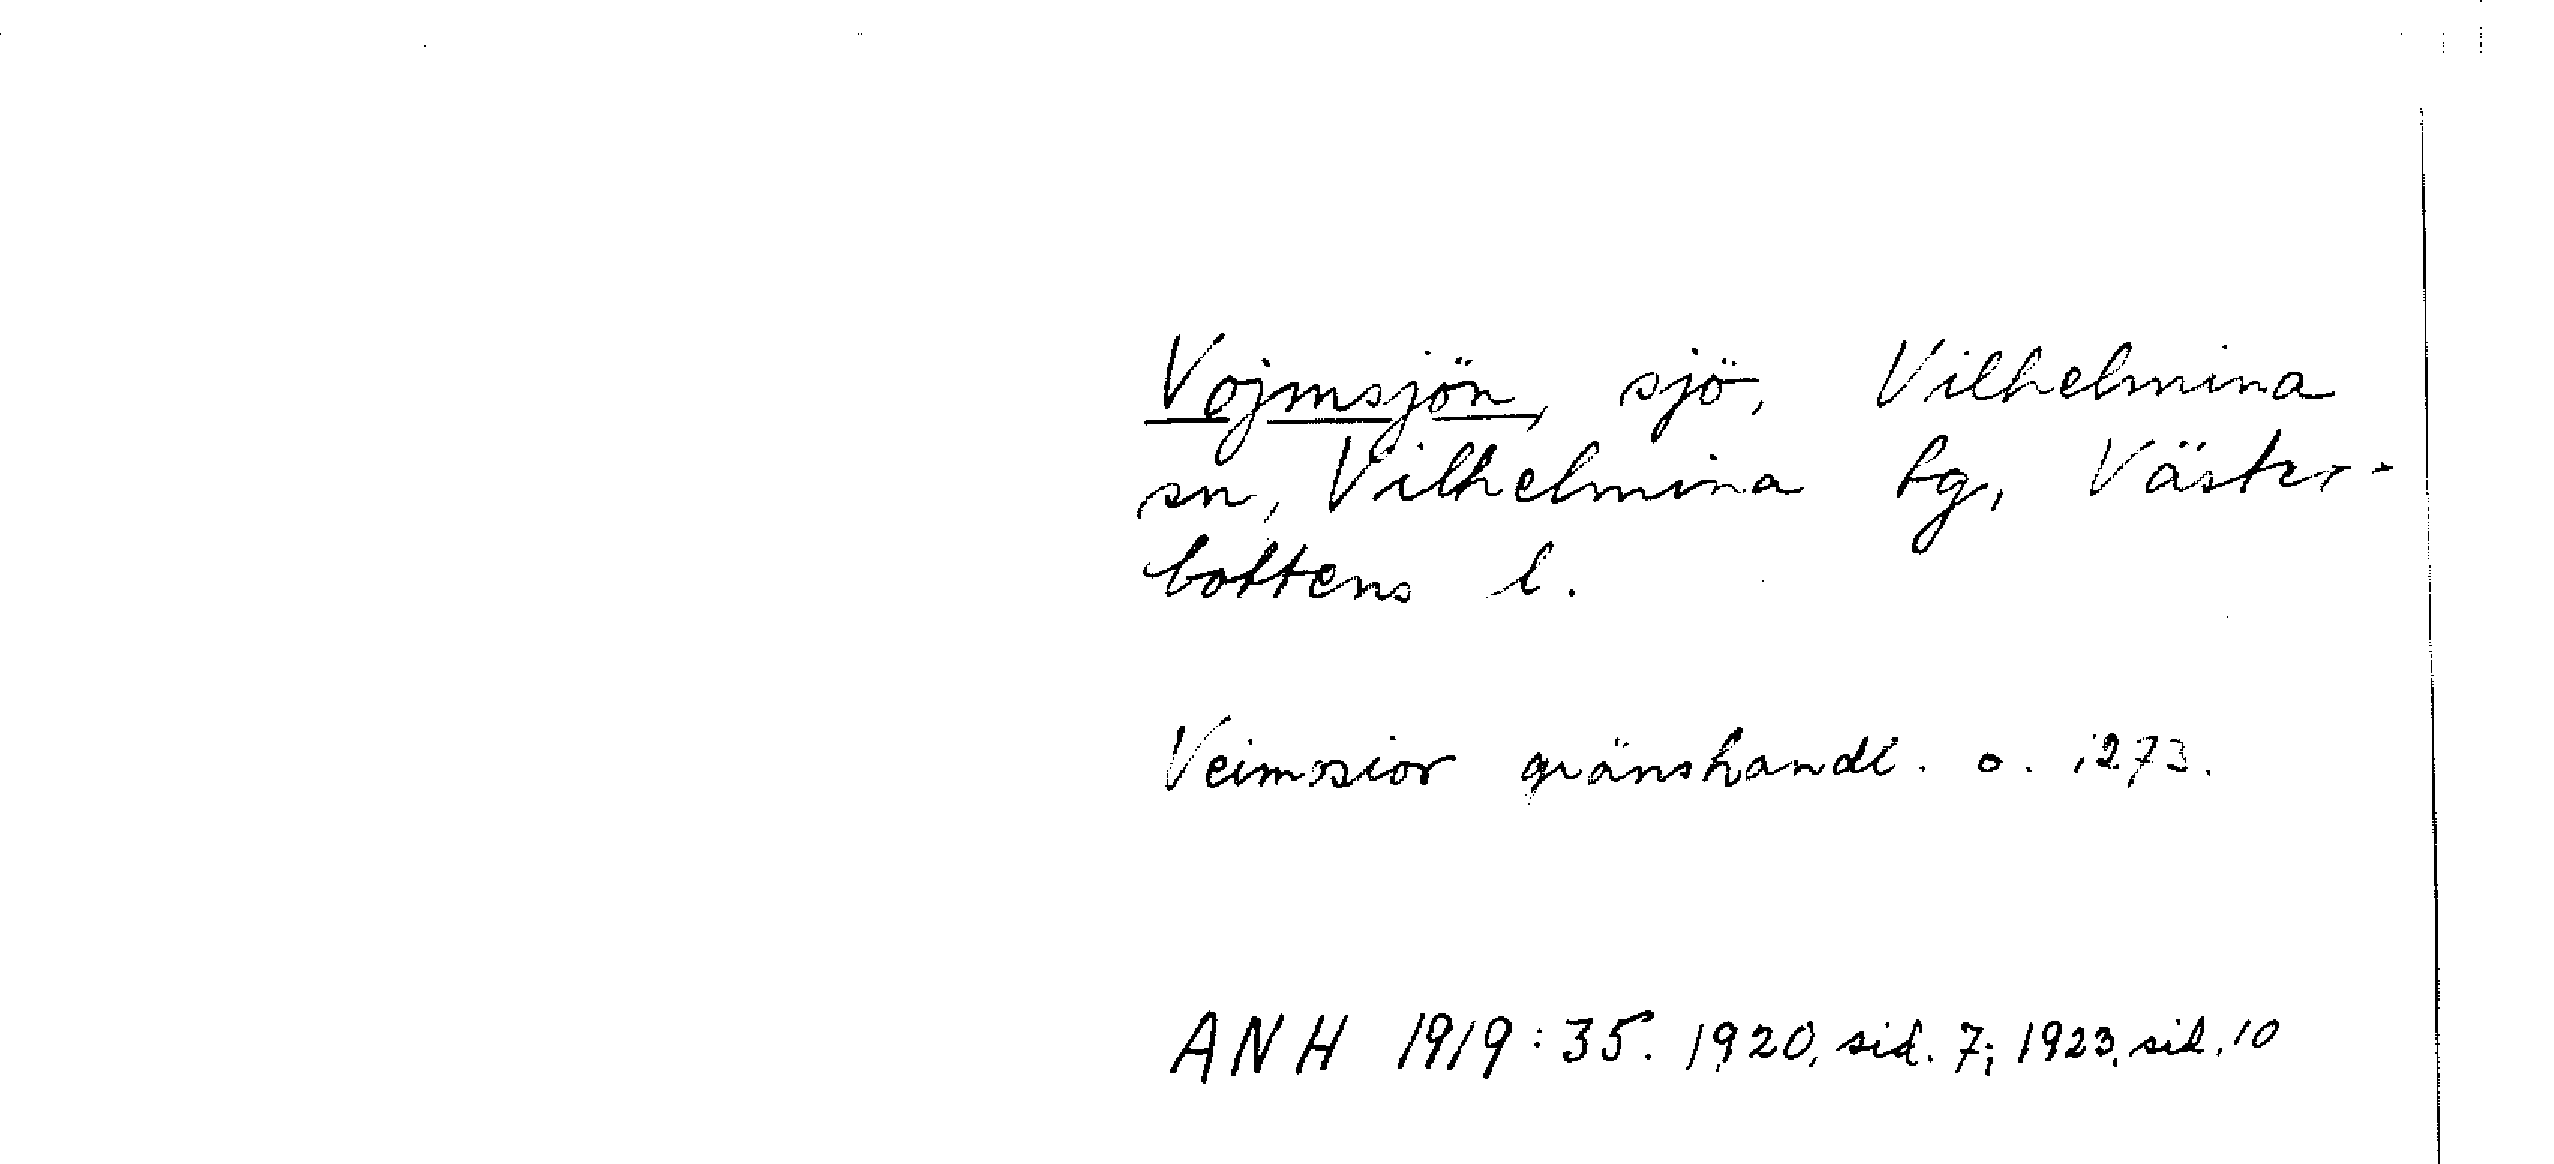 Vojmsjön, sjö, Vilhelmina
sn, Vilhelmina tg, Väster-
bottens l.
Veimosior gränshandl. o. 1273.
ANH 1919:35. 1920, sid. 7; 1923, sid. 10